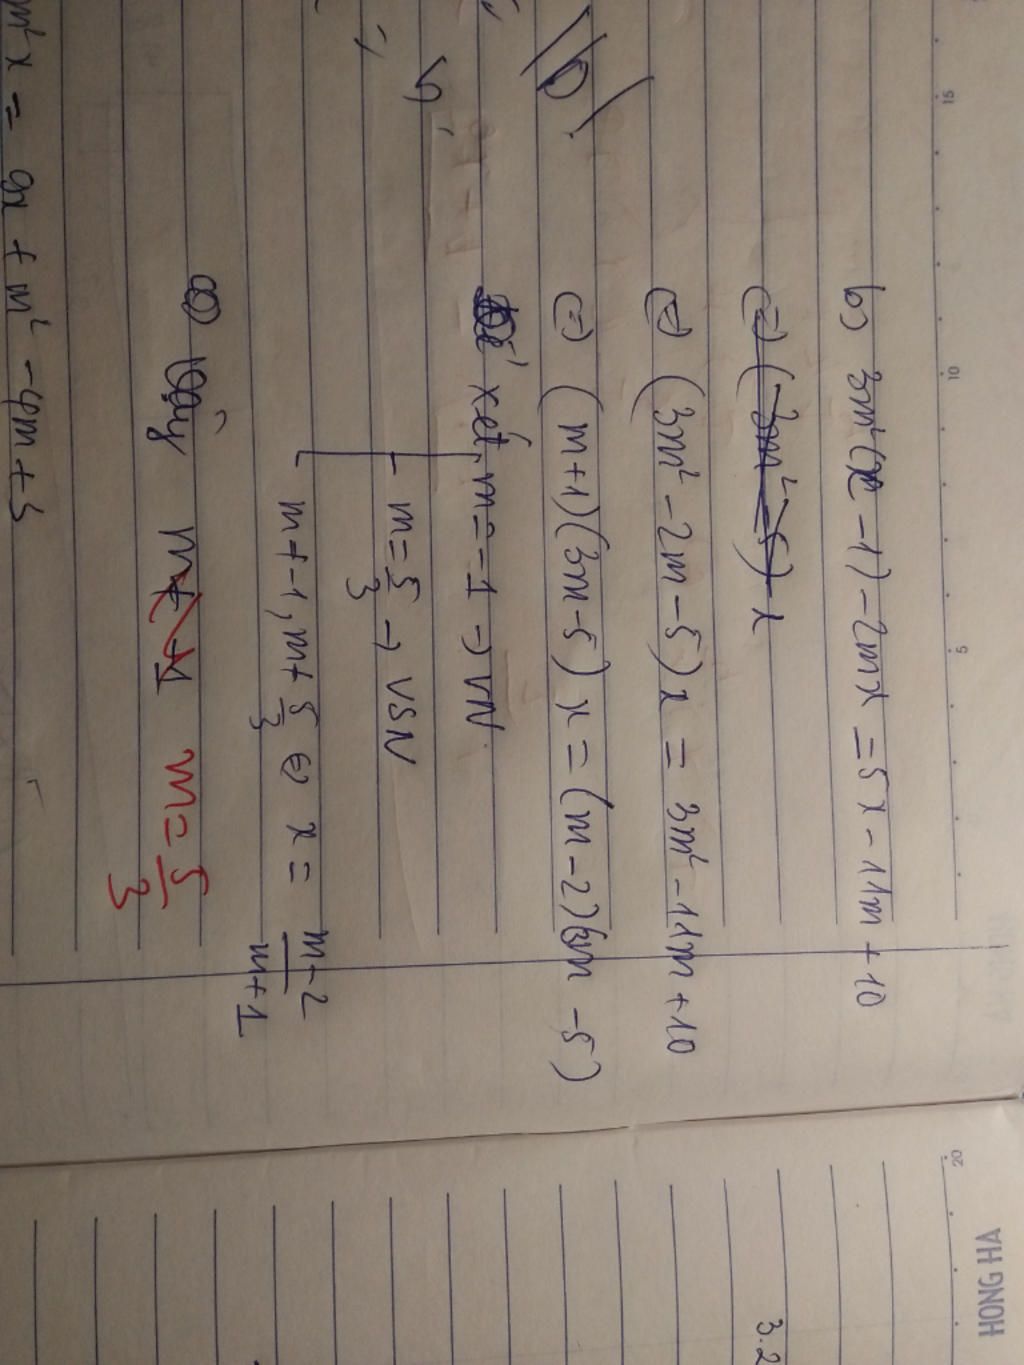 b) 3m²(x - 1) - 2mx = 5x - 11m + 10
(=) (-3m² - 5) x
(=) (3m² - 2m - 5) x = 3m² - 11m + 10
(=) (m+1)(3m-5) x = (m-2)(3m-5)
xét m = -1 → VN
m = 5/3 → VSN
m ≠ -1, m ≠ 5/3 (=) x = m-2/m+1
Vậy m ≠ -1 m = 5/3
m²x = 9x + m² - 4m + 3
15
10
5
20
HONG HA
3.2